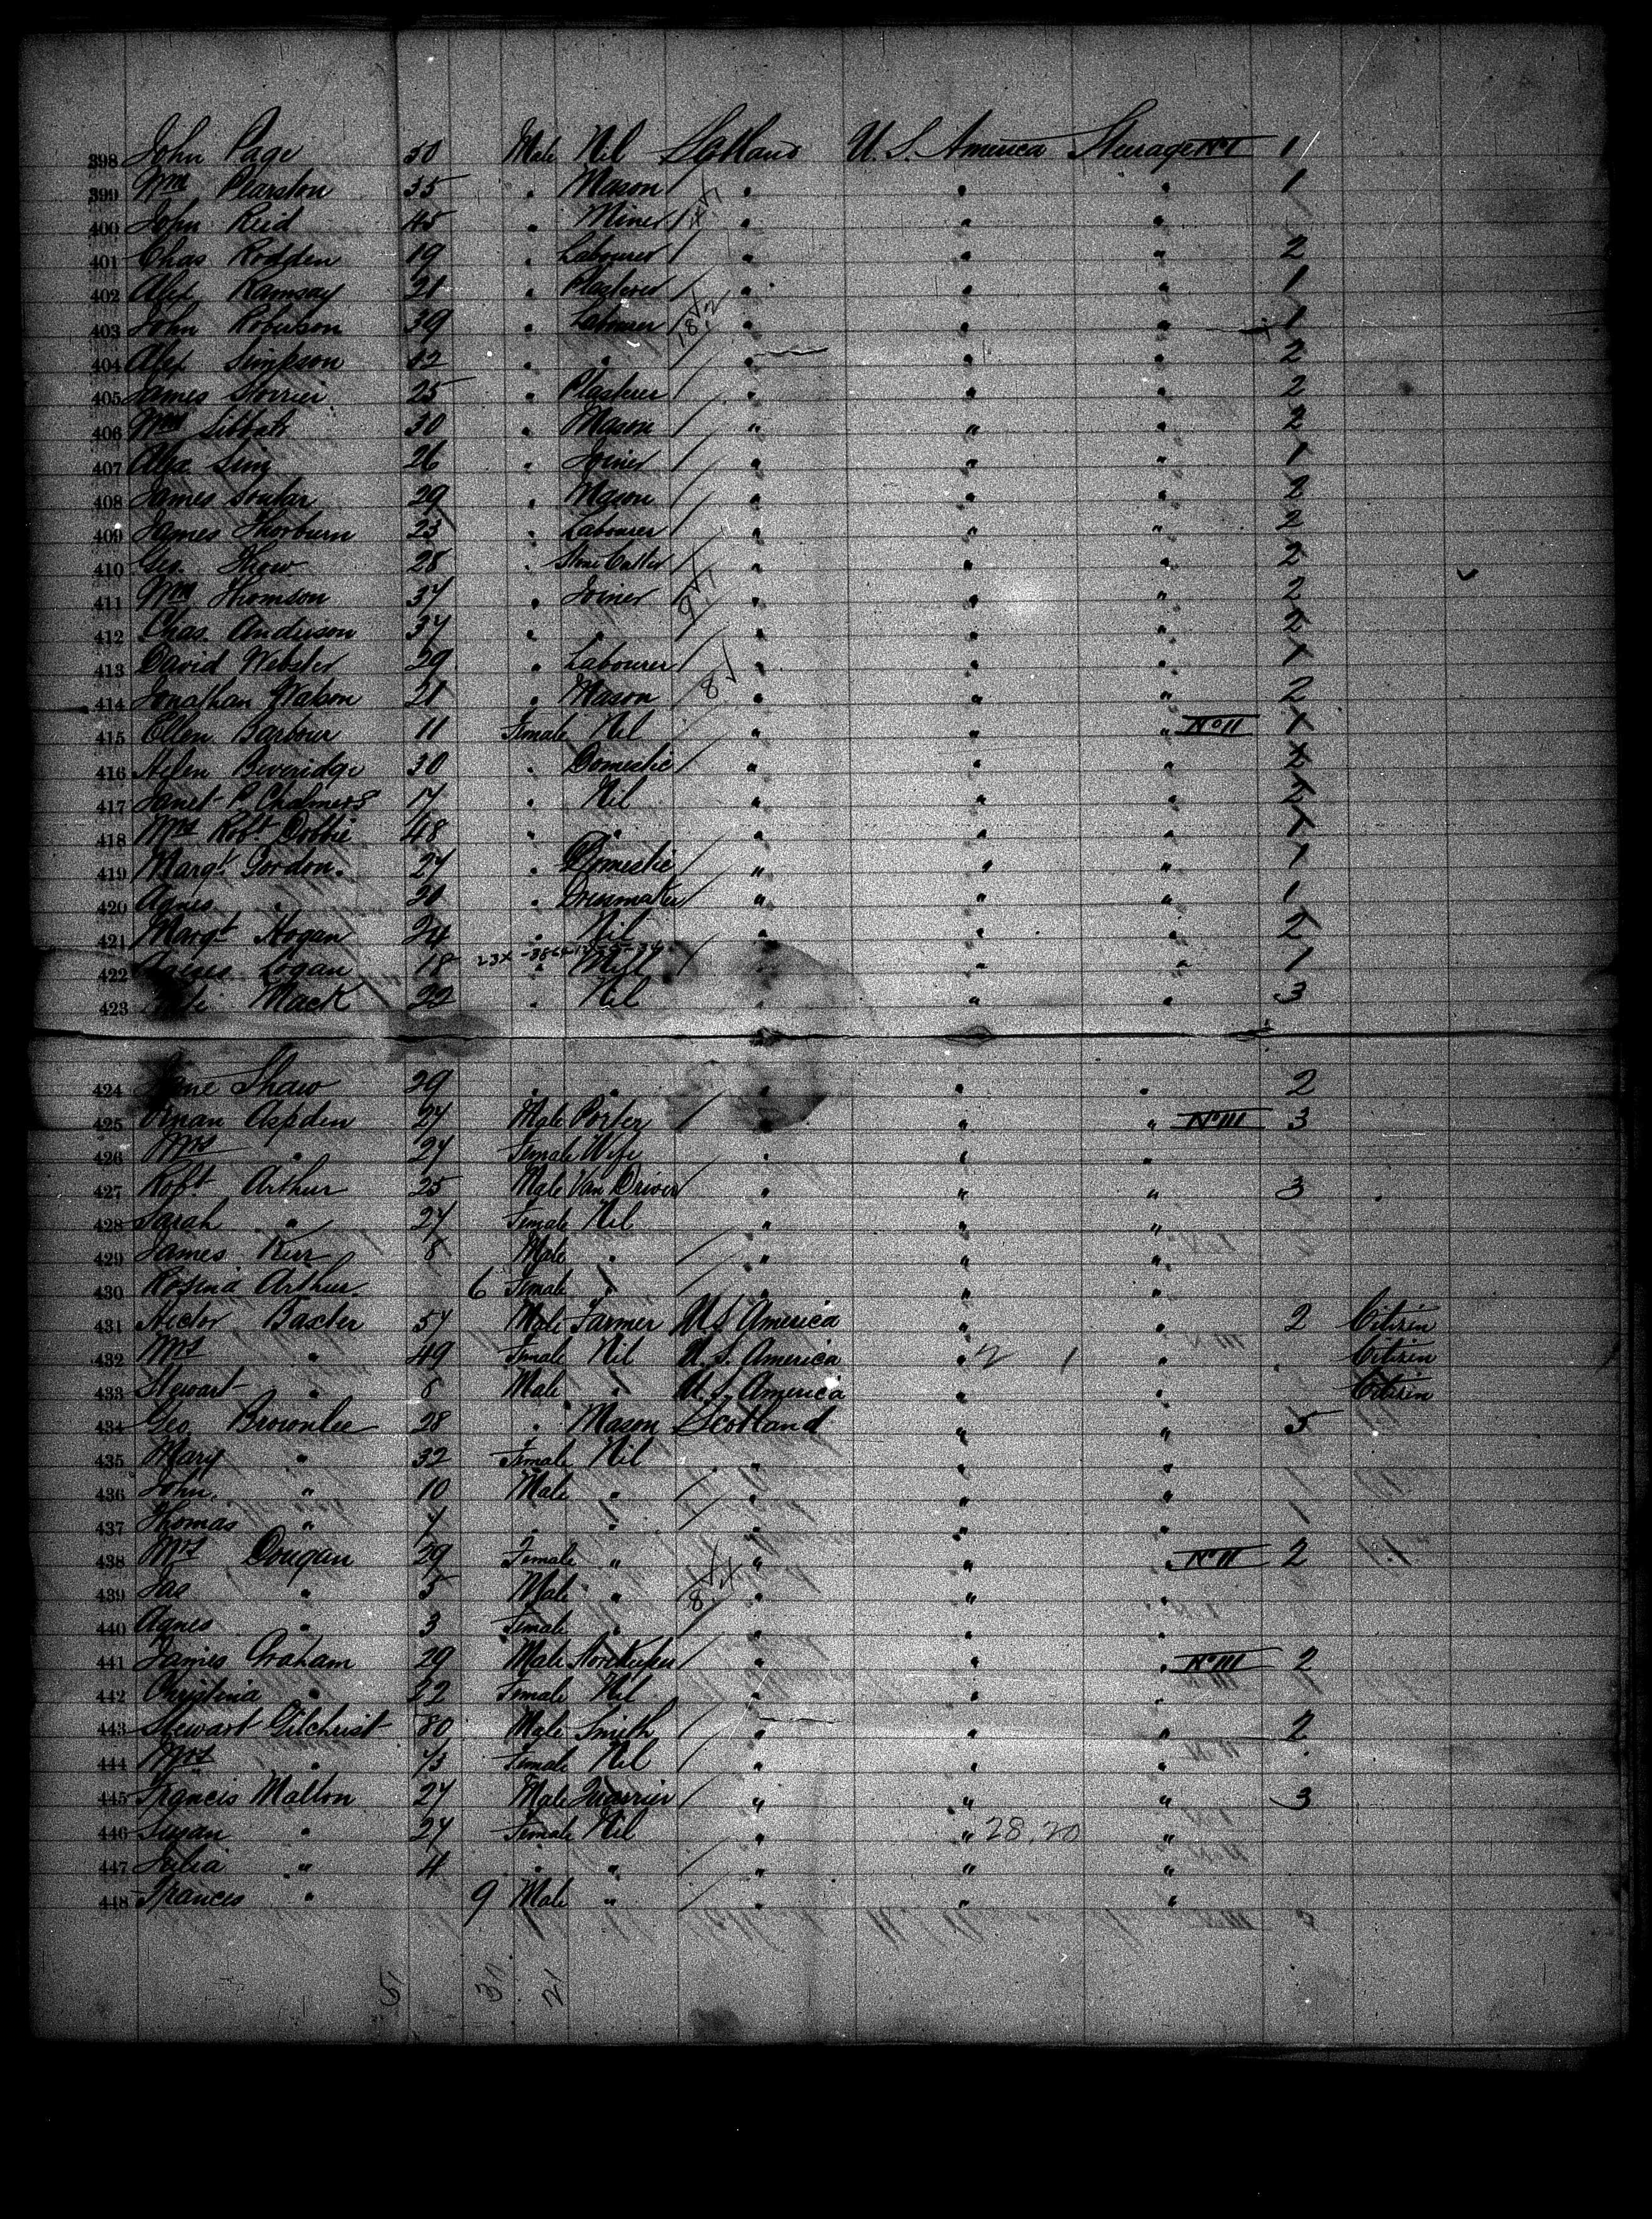 398 John Page 30 Male Nil Scotland U.S. America Steerage No I 1
399 Wm Pearston 35 " Mason " " " 1
400 John Reid 45 " Miner " " "
401 Chas Rodden 19 " Labourer " " " 2
402 Alex Ramsay 21 " Plasterer " " " 1
403 John Robertson 39 " Labourer " " " 1
404 Alex Simpson 42 " " " " " 2
405 James Storrier 25 " Plasterer " " " 2
406 Wm Sibbald 30 " Mason " " " 2
407 Alex Sim 26 " Joiner " " " 1
408 James Soutar 29 " Mason " " " 2
409 James Thorburn 23 " Labourer " " " 2
410 Geo. Thow 28 " Stone Cutter " " " 2
411 Wm Thomson 37 " Joiner " " " 2
412 Chas Anderson 37 " " " " " 2
413 David Webster 29 " Labourer " " " 1
414 Jonathan Watson 21 " Mason " " " 2
415 Ellen Barbour 11 Female Nil " " " No II 1
416 Helen Beveridge 30 " Domestic " " " 2
417 Janet P. Chalmers 17 " Nil " " " 2
418 Mrs Robt Dobbie 48 " " " " " 1
419 Margt Gordon 27 " Domestic " " " 1
420 Agnes " " Dressmaker " " " 1
421 Margt Hogan 24 " Nil " " " 2
422 Logan 18 " " " " 1
423 Mack 22 " Nil " " " 3
424 Jane Shaw 29 " " " " " 2
425 Aspden 27 Male Porter " " " No III 3
426 Mrs " 27 Female Wife " " "
427 Robt Arthur 25 Male Van Driver " " " 3
428 Sarah " 27 Female Nil " " "
429 James Kerr 8 Male " " " "
430 Rosina Arthur 6 Female " " " "
431 Hector Baxter 57 Male Farmer U.S America " " 2 Citizen
432 Mrs " 49 Female Nil U.S. America " " Citizen
433 Stewart " 8 Male " U.S. America " " Citizen
434 Geo. Brownlee 28 " Mason Scotland " " 5
435 Mary " 32 Female Nil " " "
436 John " 10 Male " " " "
437 Thomas " 7 " " " " "
438 Mrs Dougan 29 Female " " " " No II 2
439 Jas " 5 Male " " " "
440 Agnes " 3 Female " " " "
441 James Graham 29 Male Storekeeper " " " No III 2
442 Christina " 22 Female Nil " " "
443 Stewart Gilchrist 80 Male Smith " " " 2
444 Mrs " 73 Female Nil " " "
445 Francis Mallon 27 Male Quarrier " " " 3
446 Susan " 27 Female Nil " " 28.20 "
447 Julia " 4 " " " " "
448 Frances " 9 Male " " " "